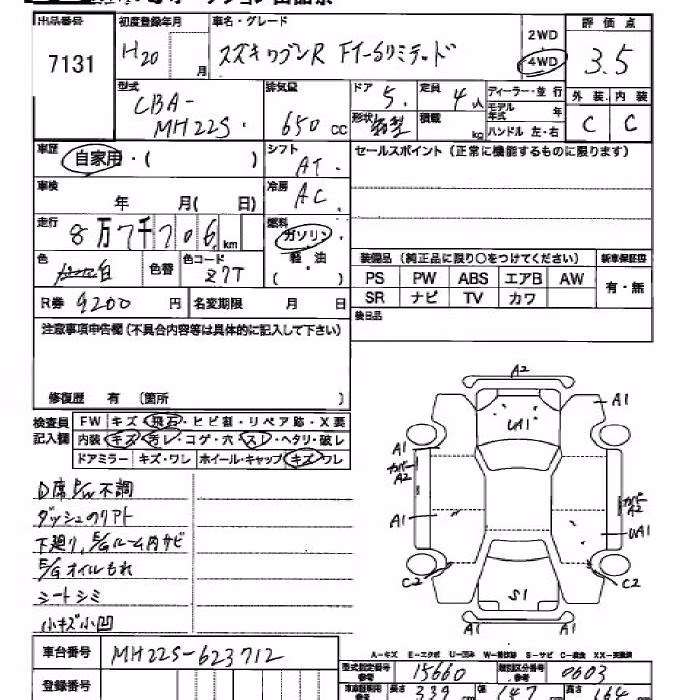 出品番号 初度登録年月 車名・グレード 2WD 評価点
7131 H20 月 スズキ ワゴンR FT-Sリミテッド 4WD 3.5
型式 排気量 ドア 定員 ディーラー・並行 外装 内装
CBA- 5. 4人 モデル年式 年 C C
MH22S. 650cc 形状 箱型 積載 kg ハンドル 左・右
車歴 自家用・( ) シフト セールスポイント(正常に機能するものに限ります)
AT.
車検 年 月( 日) 冷房 AC.
走行 8万7千706km 燃料 ガソリン・
色 白 色替 色コード Z7T 軽油 装備品(純正品に限り○をつけてください) 新車保証書
( ・ ) PS PW ABS エアB AW 有・無
R券 9200円 名変期限 月 日 SR ナビ TV カワ
注意事項申告欄(不具合内容等は具体的に記入して下さい) 後日品
修復歴 有(箇所 )
検査員 FW キズ・飛石・ヒビ割・リペア跡・X要
記入欄 内装 キズ・汚レ・コゲ・穴・スレ・ヘタリ・破レ
ドアミラー キズ・ワレ ホイール・キャップ キズ・ワレ
D席P/W不調
ダッシュのリアト
下廻り,E/Gルーム内サビ
E/Gオイルもれ
シートシミ
小キズ小凹
A2
UA1 A1
A1
カバー A2 カバー A2
A1 UA1
C2 C2
S1
A1 A1
車台番号 MH22S-623712
A-キズ E-エクボ U-凹み S-サビ C-腐食
型式指定番号 参考 15660 類別区分番号 参考 0603
登録番号 長さ 339cm 幅 147 高さ 164